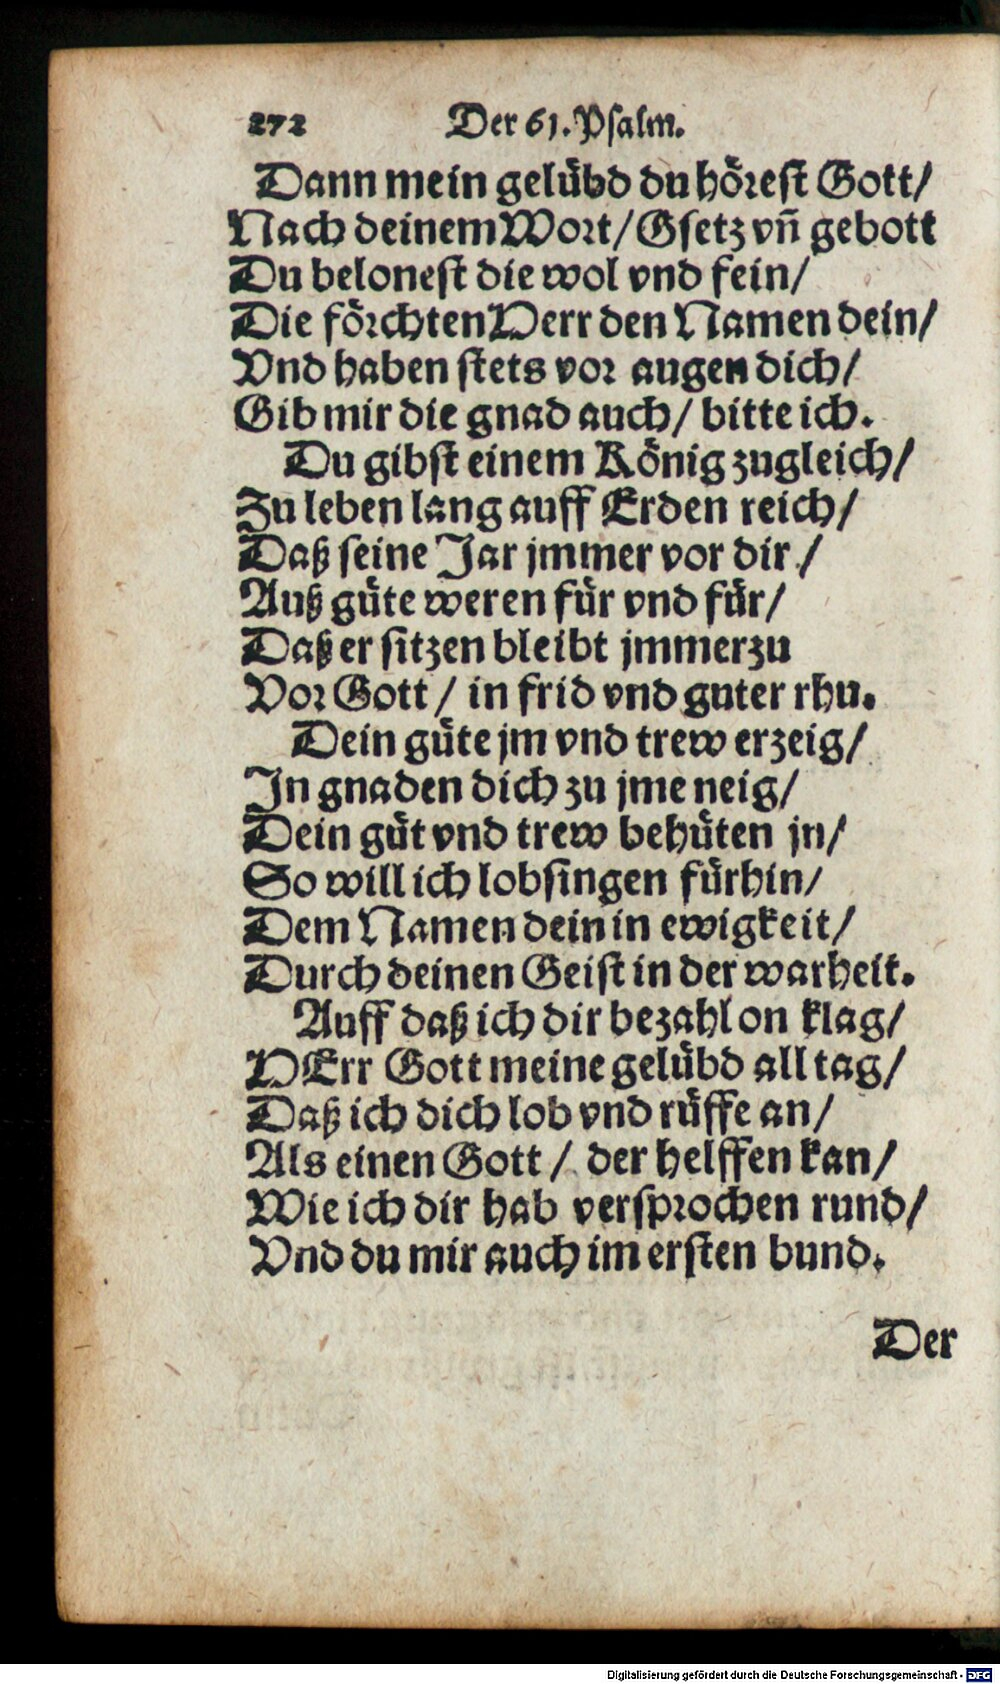 272 Der 61. Psalm.
Dann mein gelübd du hörest Gott/
Nach deinem Wort/ Gsetz vñ gebott
Du belonest die wol vnd fein/
Die förchten Herr den Namen dein/
Vnd haben stets vor augen dich/
Gib mir die gnad auch/ bitte ich.
Du gibst einem König zugleich/
Zu leben lang auff Erden reich/
Daß seine Jar jmmer vor dir/
Auß güte weren für vnd für/
Daß er sitzen bleibt jmmerzu
Vor Gott/ in frid vnd guter rhu.
Dein güte jm vnd trew erzeig/
In gnaden dich zu jme neig/
Dein güt vnd trew behüten jn/
So will ich lobsingen fürhin/
Dem Namen dein in ewigkeit/
Durch deinen Geist in der warheit.
Auff daß ich dir bezahl on klag/
HErr Gott meine gelübd all tag/
Daß ich dich lob vnd rüffe an/
Als einen Gott/ der helffen kan/
Wie ich dir hab versprochen rund/
Vnd du mir auch im ersten bund.
Der
Digitalisierung gefördert durch die Deutsche Forschungsgemeinschaft - DFG